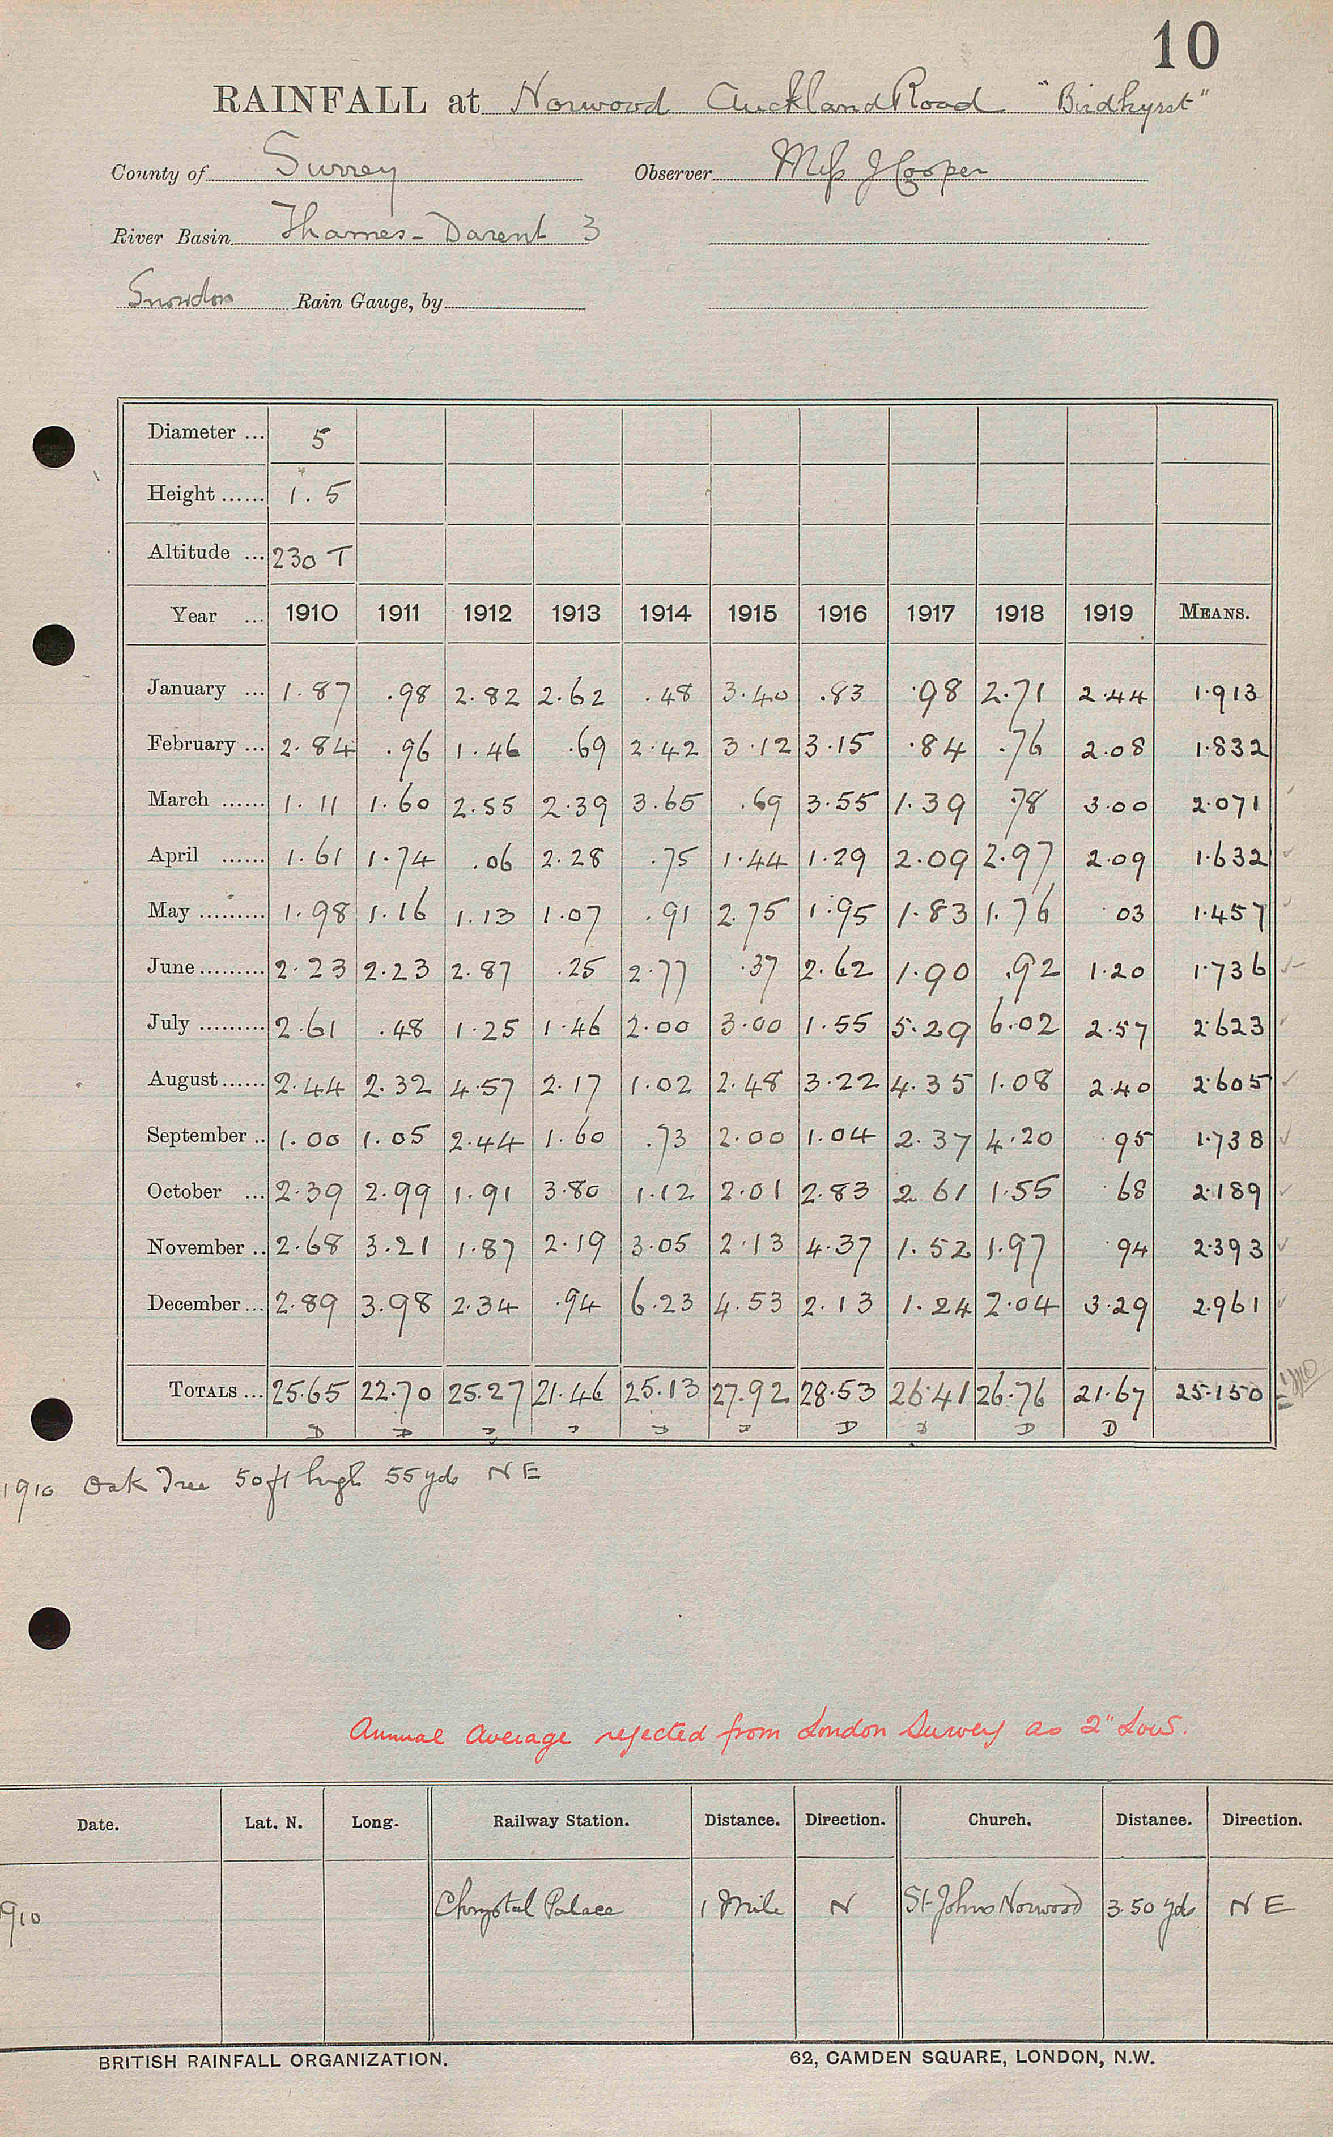 10
RAINFALL at Norwood Auckland Road "Birdhyrst"
County of Surrey Observer Miss J Cooper
River Basin Thames - Darent 3
Snowdon Rain Gauge, by
Diameter ... 5
Height ...... 1.5
Altitude ... 230 T
Year ... 1910 1911 1912 1913 1914 1915 1916 1917 1918 1919 MEANS.
January ... 1.87 .98 2.82 2.62 .48 3.40 .83 .98 2.71 2.44 1.913
February ... 2.84 .96 1.46 .69 2.42 3.12 3.15 .84 .76 2.08 1.832
March ...... 1.11 1.60 2.55 2.39 3.65 .69 3.55 1.39 .78 3.00 2.071
April ...... 1.61 1.74 .06 2.28 .75 1.44 1.29 2.09 2.97 2.09 1.632
May ......... 1.98 1.16 1.13 1.07 .91 2.75 1.95 1.83 1.76 03 1.457
June ......... 2.23 2.23 2.87 .25 2.77 .37 2.62 1.90 .92 1.20 1.736
July ......... 2.61 .48 1.25 1.46 2.00 3.00 1.55 5.29 6.02 2.57 2.623
August ...... 2.44 2.32 4.57 2.17 1.02 2.48 3.22 4.35 1.08 2.40 2.605
September .. 1.00 1.05 2.44 1.60 .73 2.00 1.04 2.37 4.20 .95 1.738
October ... 2.39 2.99 1.91 3.80 1.12 2.01 2.83 2 61 1.55 .68 2.189
November .. 2.68 3.21 1.87 2.19 3.05 2.13 4.37 1.52 1.97 .94 2.393
December ... 2.89 3.98 2.34 .94 6.23 4.53 2.13 1.24 2.04 3.29 2.961
TOTALS ... 25.65 22.70 25.27 21.46 25.13 27.92 28.53 26.41 26.76 21.67 25.150
D D D D D D D D D D
1910 Oak Tree 50 ft high 55 yds N E
Annual Average rejected from London Survey as 2" Low.
Date. Lat. N. Long. Railway Station. Distance. Direction. Church. Distance. Direction.
1910 Chrystal Palace 1 Mile N St Johns Norwood 350 yds N E
BRITISH RAINFALL ORGANIZATION. 62, CAMDEN SQUARE, LONDON, N.W.